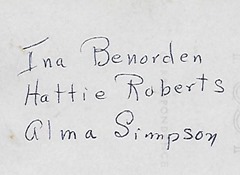 Ina Benorden
Hattie Roberts
Alma Simpson